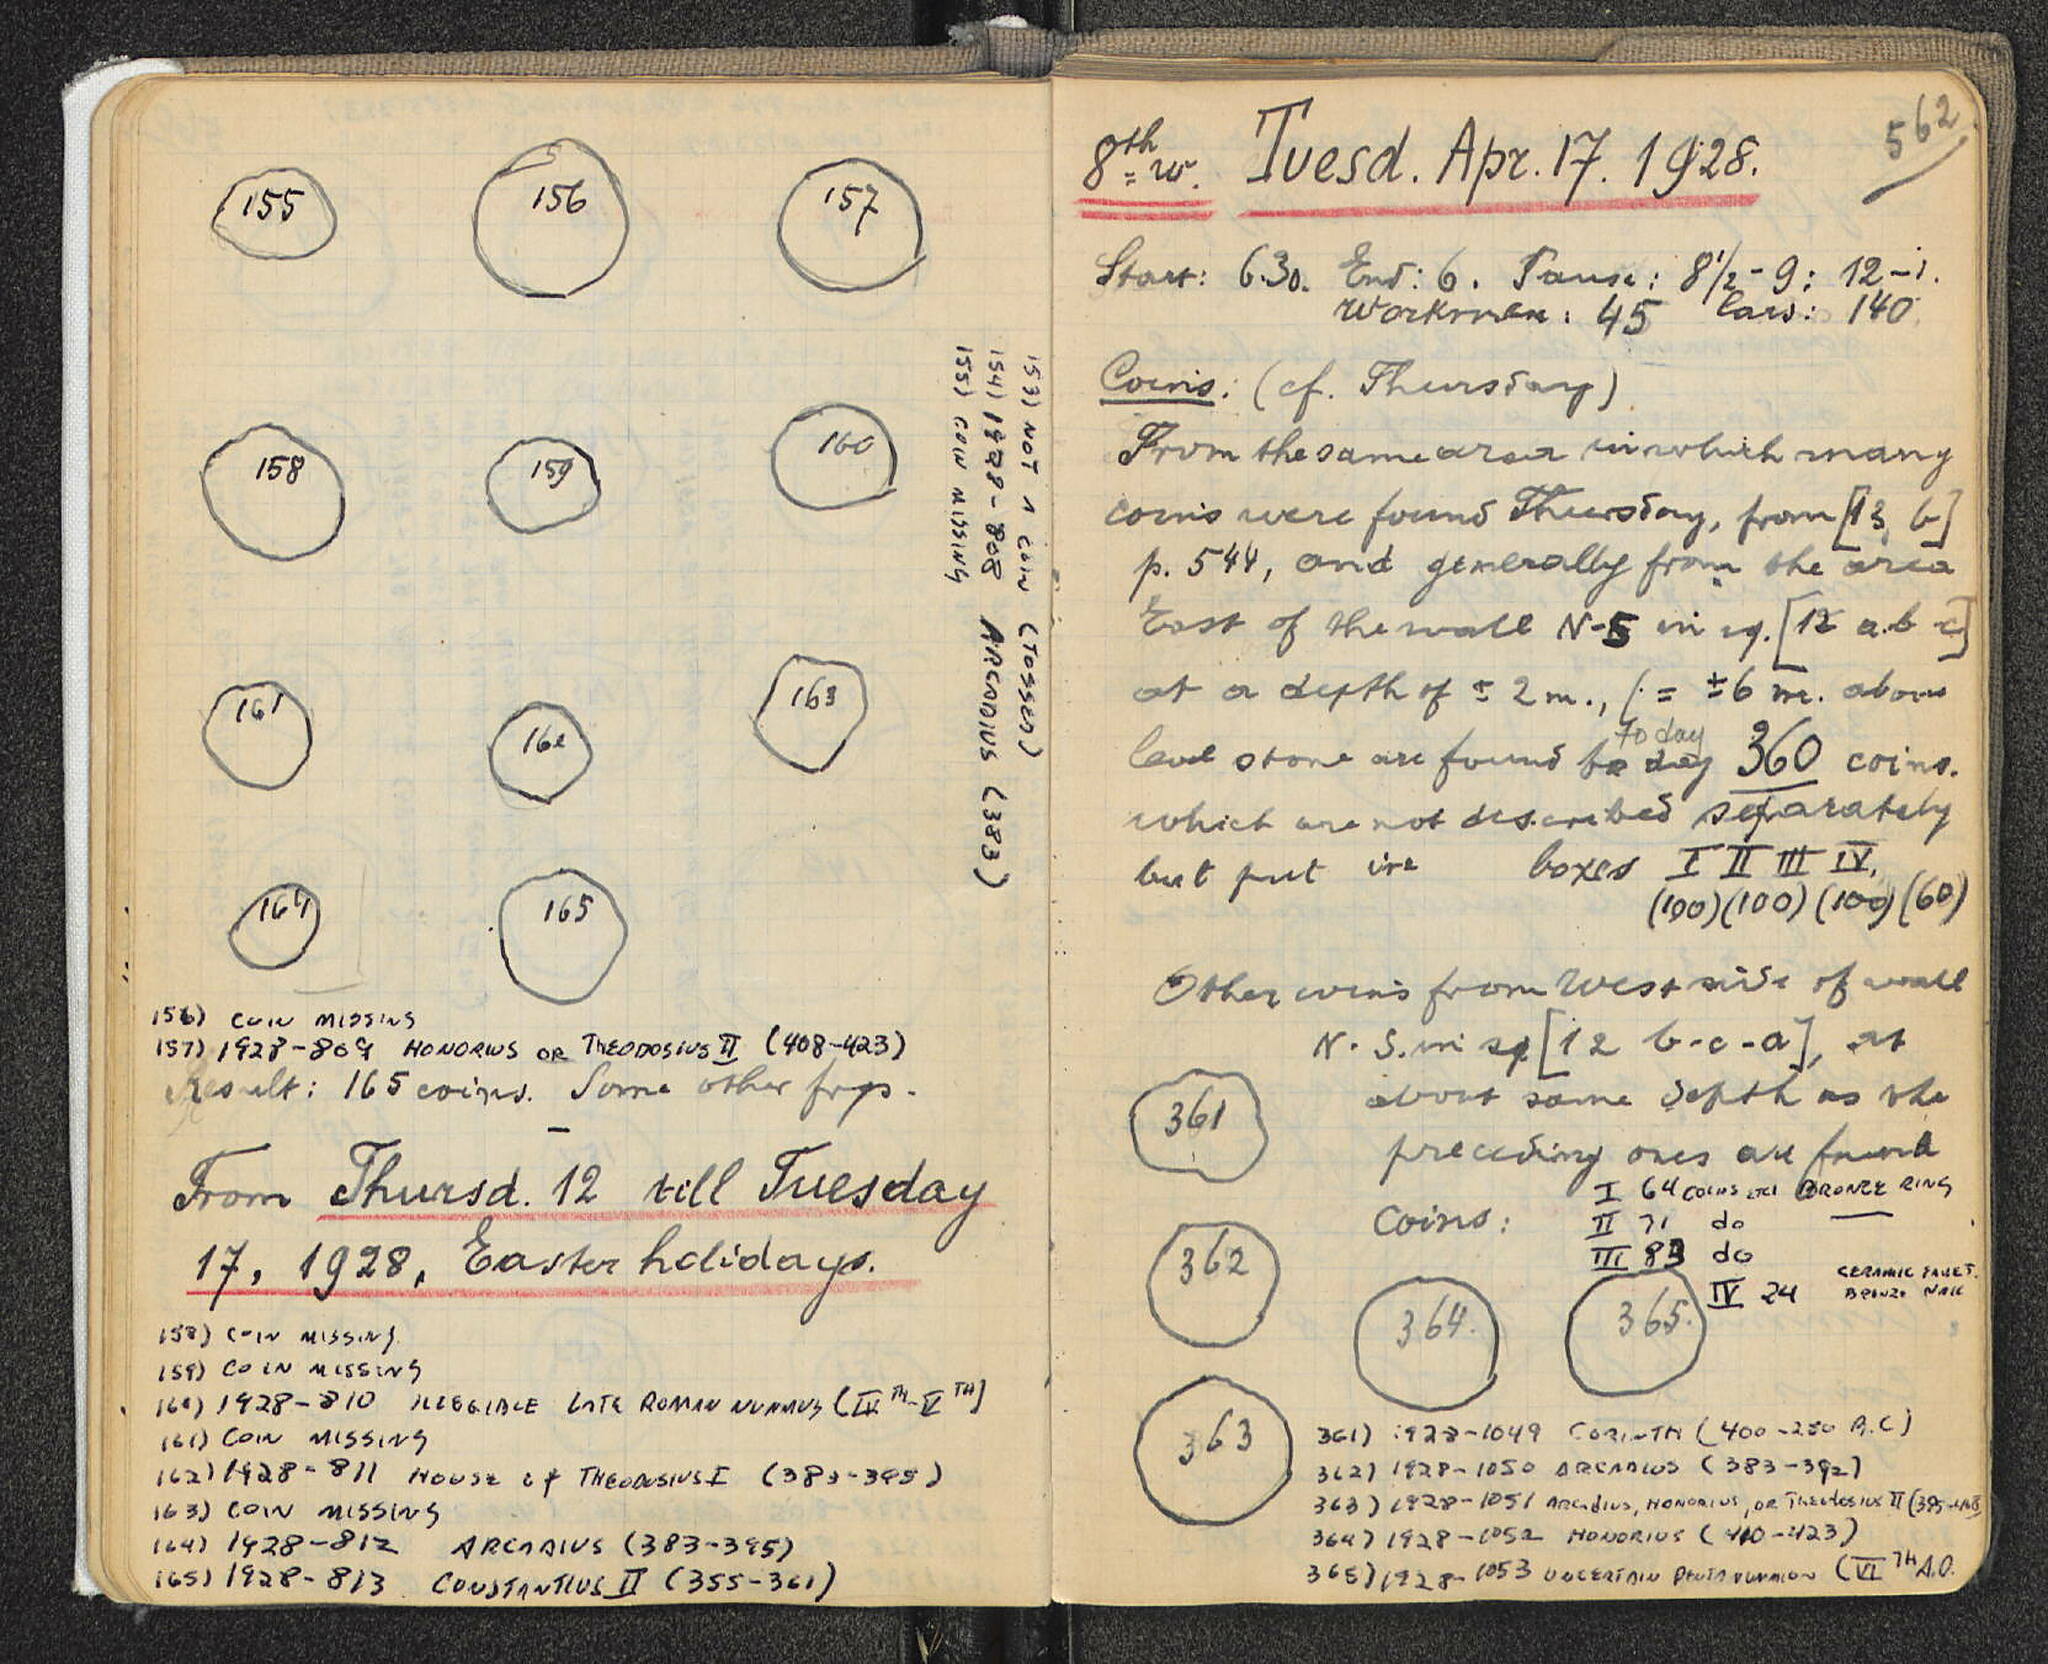 155
156
157
158
159
160
161
162
163
164
165
153) NOT A COIN (TOSSED)
154) 1928-808 ARCADIUS (383)
155) COIN MISSING
156) COIN MISSING
157) 1928-809 HONORIUS OR THEODOSIUS II (408-423)
Result: 165 coins. Some other frgs.
From Thursd. 12 till Tuesday
17, 1928, Easter holidays.
158) COIN MISSING
159) COIN MISSING
160) 1928-810 ILLEGIBLE LATE ROMAN NUMMUS (IVTH-VTH)
161) COIN MISSING
162) 1928-811 HOUSE OF THEODOSIUS I (383-395)
163) COIN MISSING
164) 1928-812 ARCADIUS (383-395)
165) 1928-813 CONSTANTIUS II (355-361)
562
8th w. Tuesd. Apr. 17. 1928.
Start: 6.30. End: 6. Pause: 8 1/2-9; 12-1.
Workmen: 45 Cars: 140
Coins: (cf. Thursday)
From the same area in which many
coins were found Thursday, from [13 b]
p. 544, and generally from the area
East of the wall N-S in sq. [12 a.b-c]
at a depth of ± 2 m., (= ±6 m. above
today
level stone are found 360 coins.
which are not described separately
but put in boxes I II III IV.
(100) (100) (100) (60)
Other coins from West side of wall
N-S. in sq. [12 b-c-a], at
about same depth as the
preceding ones are found
I 64 COINS BRONZE RING
coins: II 71 do
III 83 do
IV 24 CERAMIC
BRONZE NAIL
361
362
363
364.
365.
361) 1928-1049 CORINTH (400-250 B.C)
362) 1928-1050 ARCADIUS (383-392)
363) 1928-1051 ARCADIUS, HONORIUS, OR THEODOSIUS II
364) 1928-1052 HONORIUS (410-423)
365) 1928-1053 UNCERTAIN PENTANUMMION (VITH A.D.